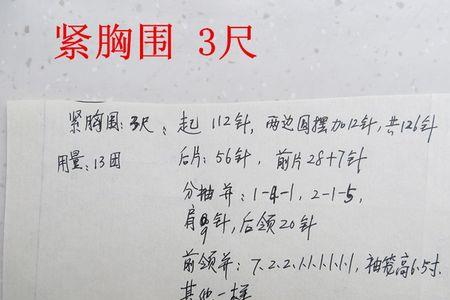 紧胸围 3尺
紧胸围:3尺, 起112针, 两边圆摆加12针, 共126针
用量:13团 后片:56针, 前片28+7针
分抽并:1-4-1, 2-1-5,
肩9针, 后领20针
前领并:7.2.2.1.1.1.1.1.1, 袖笼高6.5寸
其他一样